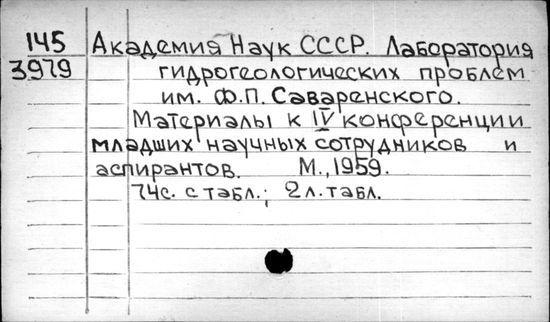 145 Академия Наук СССР. Лаборатория
3979 гидрогеологических проблем
им. Ф.П. Саваренского.
Материалы к IV конференции
младших научных сотрудников и
аспирантов. М., 1959.
74с. с табл.; 2 л. табл.